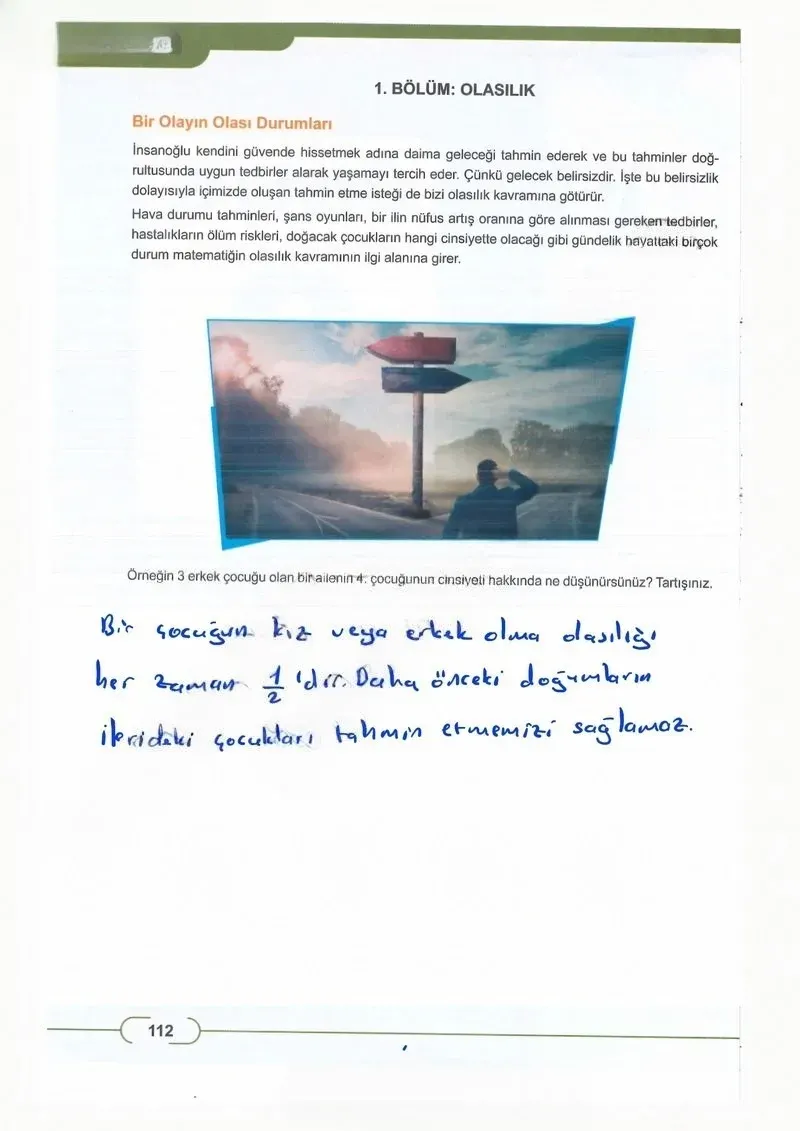 1. BÖLÜM: OLASILIK
Bir Olayın Olası Durumları
İnsanoğlu kendini güvende hissetmek adına daima geleceği tahmin ederek ve bu tahminler doğ-
rultusunda uygun tedbirler alarak yaşamayı tercih eder. Çünkü gelecek belirsizdir. İşte bu belirsizlik
dolayısıyla içimizde oluşan tahmin etme isteği de bizi olasılık kavramına götürür.
Hava durumu tahminleri, şans oyunları, bir ilin nüfus artış oranına göre alınması gereken tedbirler,
hastalıkların ölüm riskleri, doğacak çocukların hangi cinsiyette olacağı gibi gündelik hayattaki birçok
durum matematiğin olasılık kavramının ilgi alanına girer.
Örneğin 3 erkek çocuğu olan bir ailenin 4. çocuğunun cinsiyeti hakkında ne düşünürsünüz? Tartışınız.
Bir çocuğun kız veya erkek olma olasılığı
her zaman 1/2 'dir. Daha önceki doğumların
ilerideki çocukları tahmin etmemizi sağlamaz.
112